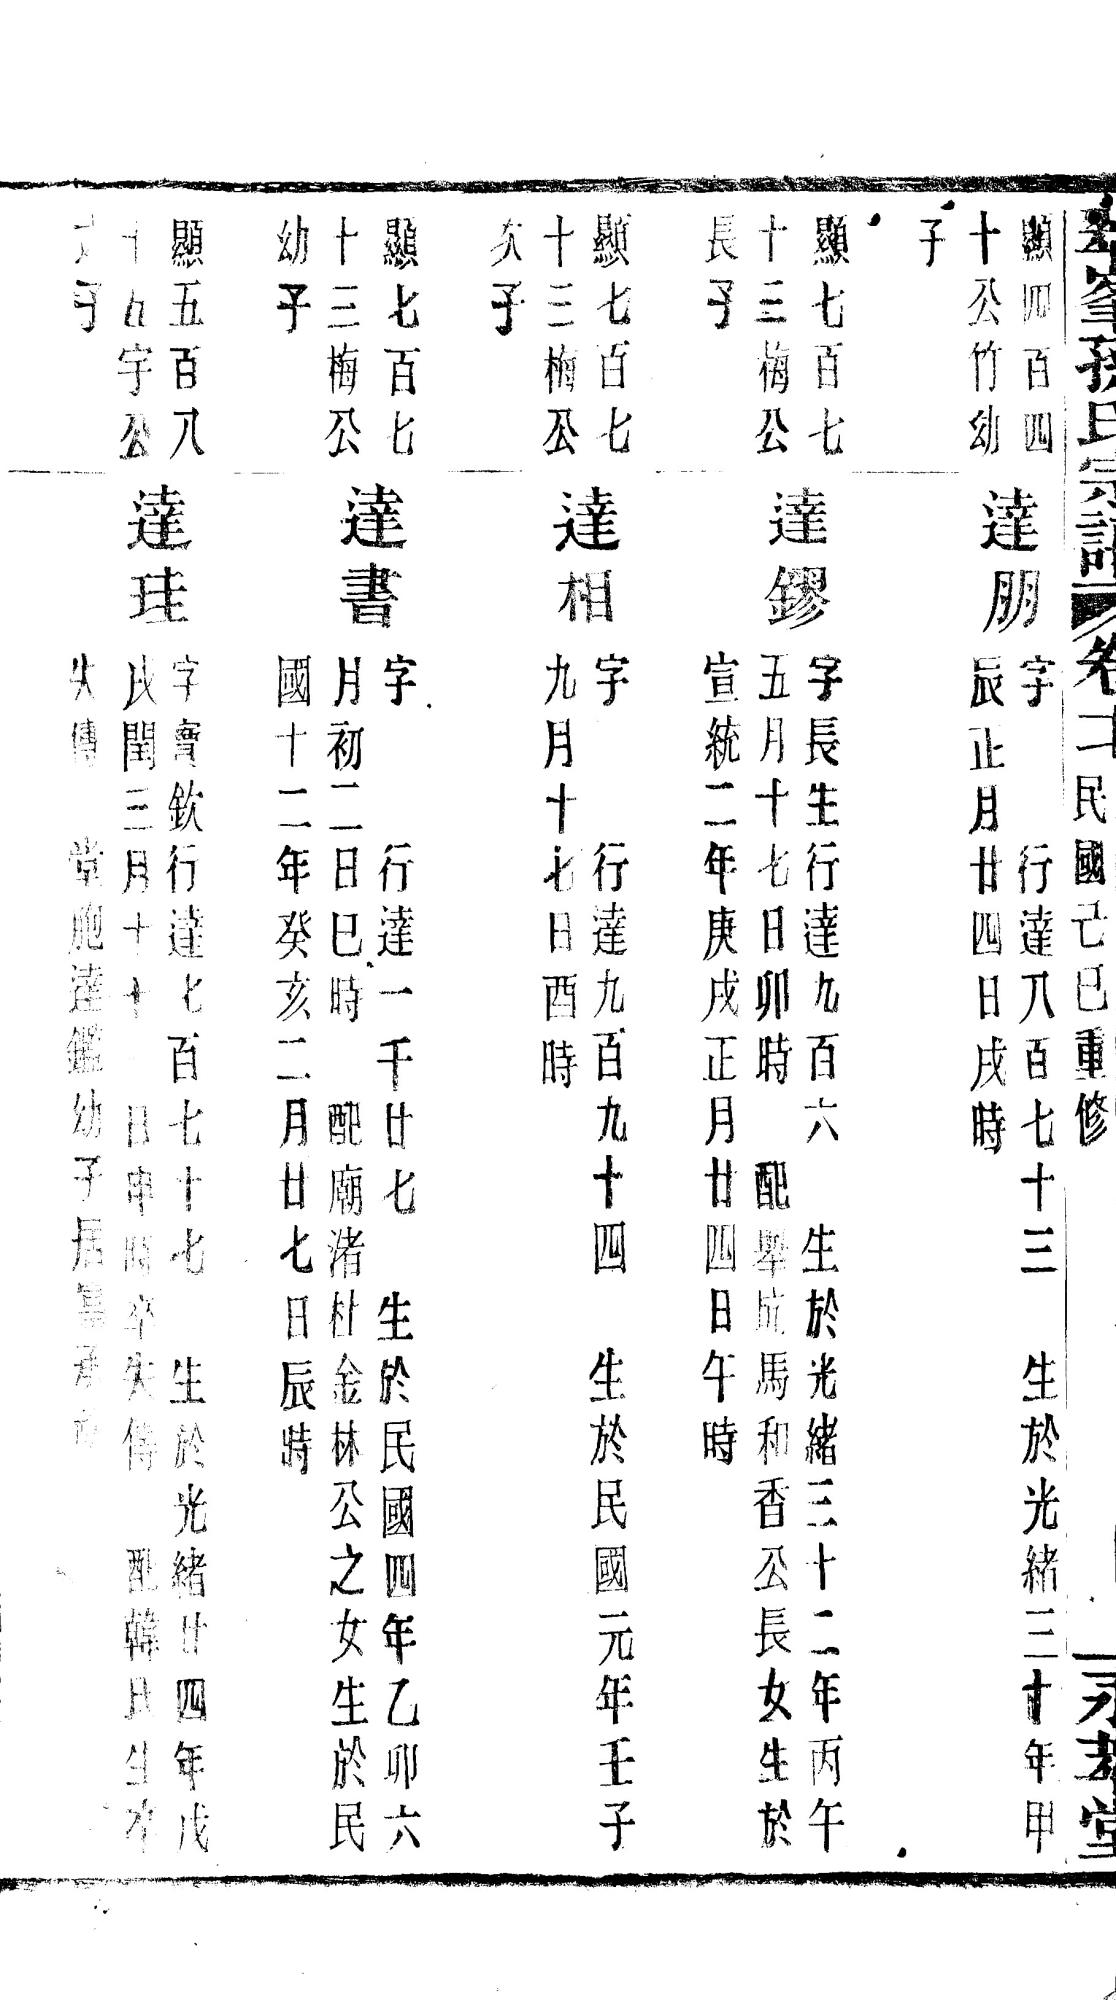 峯孫氏宗譜 卷 民國己巳重修 永孝堂
顯四百四
十公竹幼
子
達朋
字 行達八百七十三 生於光緒三十年甲
辰正月廿四日戌時
顯七百七
十三梅公
長子
達鏐
字長生行達九百六 生於光緒三十二年丙午
五月十七日卯時 配舉成馬和香公長女生於
宣統二年庚戌正月廿四日午時
顯七百七
十三梅公
次子
達相
字 行達九百九十四 生於民國元年壬子
九月十七日酉時
顯七百七
十三梅公
幼子
達書
字 行達一千廿七 生於民國四年乙卯六
月初二日巳時 配廟渚杜金林公之女生於民
國十二年癸亥二月廿七日辰時
顯五百八
十五宇公
子
達珪
字寶欽行達七百七十七 生於光緒廿四年戊
戌閏三月十 日申時卒失傳 配韓氏生卒
失傳 堂胞達鑑幼子居